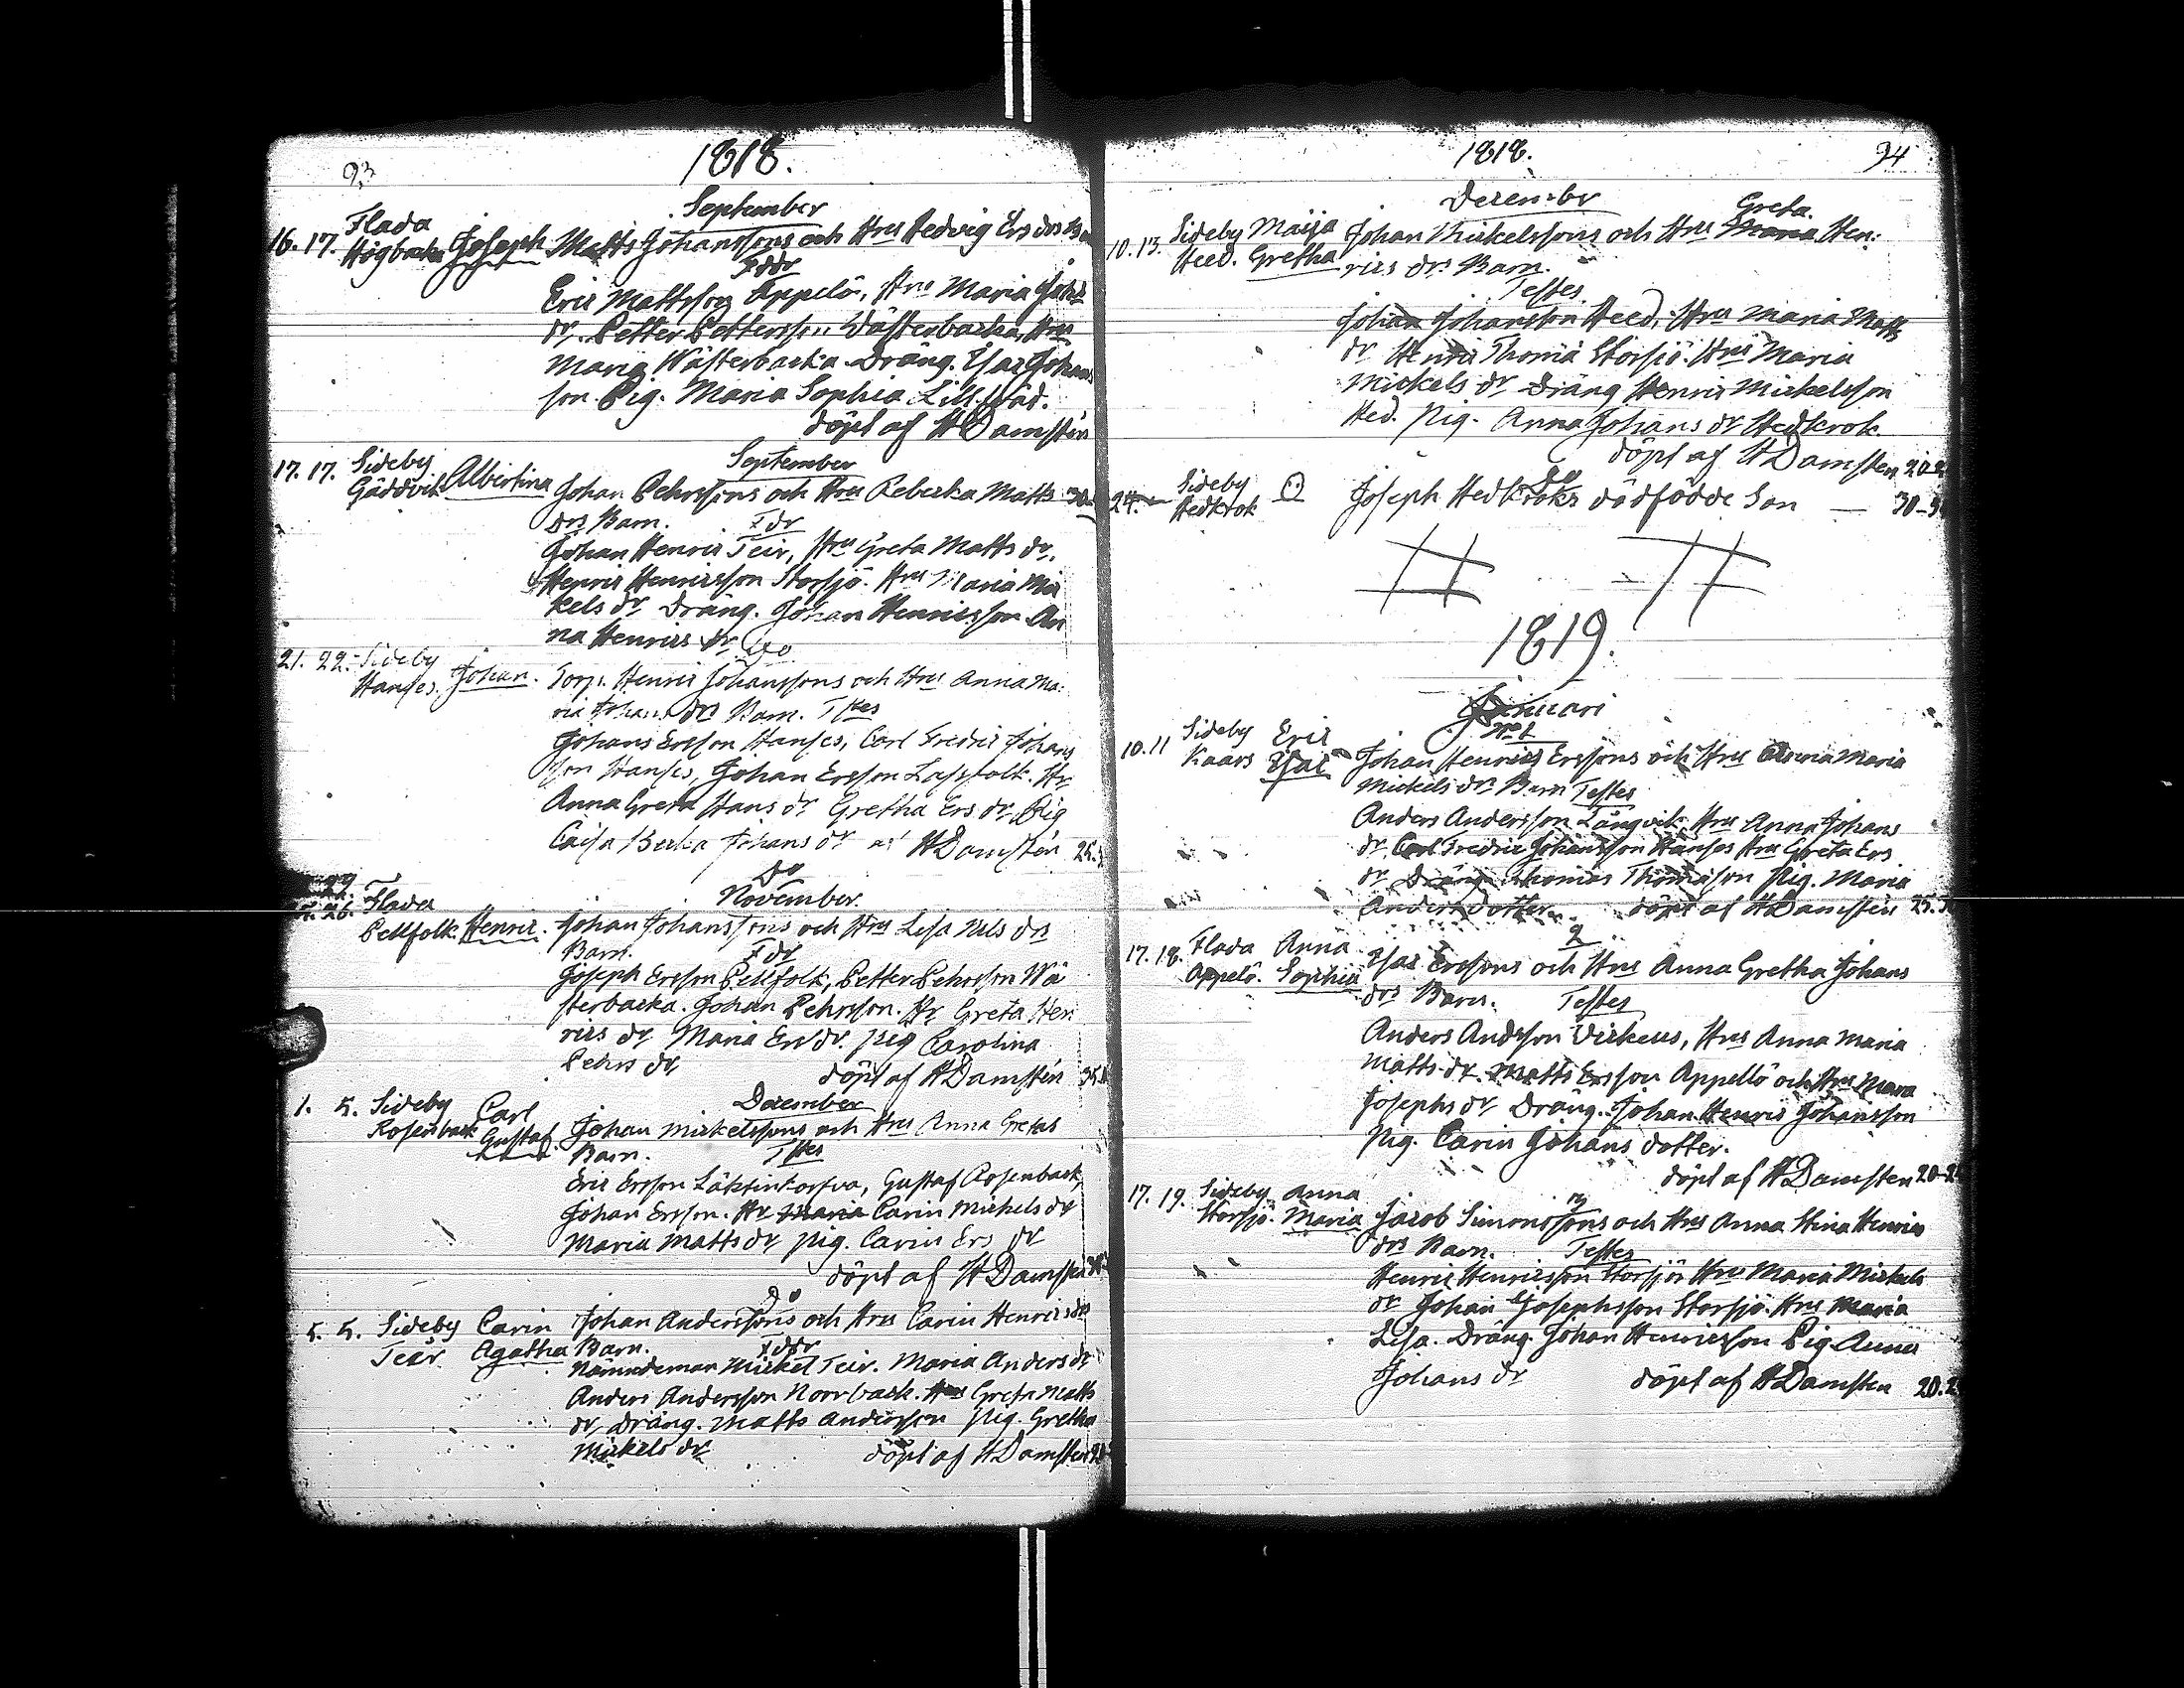 93
1818.
September
16. 17. Flada Högbacka Joseph Matts Johanssons och Hrus Hedvig Ers drs
Fddr
Eric Mattsson Appelö, Hru Maria Johs
dr. Petter Pettersson Wästerbacka, Hru
Maria Wästerbacka. Dräng. Isac Johans
son. Pig. Maria Sophia
döpt af HDamstén
September
17. 17. Sideby Gäddvik Albertina Johan Pehrssons och Hrus Rebecka Matts 30
drs Barn. Fdr
Johan Henric Teir, Hru Greta Matts dr.
Henric Henricsson Storsjö. Hru Maria Mic
kels dr Dräng. Johan Henricsson An
na Henrics dr
Do
21. 22. Sideby Hanses. Johan. Torp. Henric Johanssons och Hrus Anna Ma:
ria Johans drs Barn. Tstes
Johans Ersson Hanses, Carl Fredric Johans
son Hanses, Johan Ersson Lassfolk. Hr
Anna Greta Hans dr Gretha Ers dr, Pig
Caisa Johans dr af HDamstén 25.
Do
November.
26. Flada Pellfolk. Henric. Johan Johanssons och Hrus Lisa Nils drs
Barn. Fdr
Joseph Ersson Pellfolk, Petter Pehrsson Wä
sterbacka. Johan Pehrsson. Hr Greta Hen
rics dr, Maria Ers dr. pig Carolina
Pehrs dr
döpt af HDamstén 35.
December
1. 5. Sideby Rosenback Carl Gustaf Johan Mickelssons och Hrus Anna Gretas
Barn. Tstes
Eric Ersson, Gustaf Rosenback,
Johan Ersson. Hr Maria Carin Mickels dr
Maria Matts dr, pig. Carin Ers dr
döpt af HDamsten
Do
5. 5. Sideby Teir Carin Agatha Johan Anderssons och Hrus Carin Henrics drs
Barn. Fddr
Nämndeman Mickel Teir. Maria Anders dr
Anders Andersson Norrback. Hru Greta Matts
dr, Dräng. Matts Andersson pig. Gretha
Mickels dr
döpt af HDamsten
1818.
94
December
10. 13. Sideby Heed. Maija Gretha Johan Mickelssons och Hrus Maria Greta Hen:
rics drs Barn.
Testes
Johan Johansson Heed, Hru Maria Matts
dr Henric Thomä Storsjö. Hru Maria
Mickels dr Dräng Henric Mickelsson
Hed. pig. Anna Johans dr Hedkrok.
döpt af HDamsten 20.2
Do
24. Sideby Hedkrok Joseph Hedkroks dödfödde Son — 30-
1819.
Januari
No 1
10. 11 Sideby Kaars Eric Isac Johan Henrics Erssons och Hrus Anna Maria
Mickels drs Barn Testes
Anders Andersson Långvik, Hru Anna Johans
dr. Carl Fredric Johansson Hanses Hru Greta Ers
dr Dräng Thomas Thomasson pig. Maria
Anders dotter. döpt af HDamstén 25.
2
17. 18. Flada Appelö. Anna Sophia Isac Erssons och Hrus Anna Gretha Johans
drs Barn. Testes
Anders Andsson, Hru Anna Maria
Matts dr. Matts Ersson Appellö och Hru Maria
Josephs dr Dräng. Johan Henric Johansson
pig. Carin Johans dotter.
döpt af HDamsten 20-2
3
17. 19. Sideby Storsjö. Anna Maria Jacob Simonssons och Hrus Anna Stina Henrics
drs Barn. Testes
Henric Henricsson Storsjö. Hru Maria Mickels
dr Johan Josephsson Storsjö. Hru Maria
Lisa. Dräng Johan Henricsson Pig. Anna
Johans dr
döpt af HDamsten 20.2